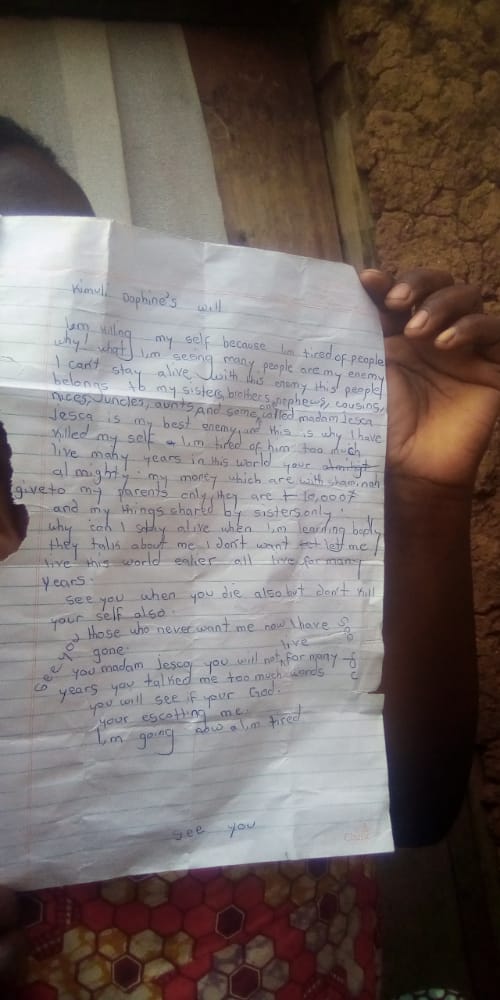 Kimuli Daphine's will
I,am killing my self because I,m tired of people
why! what I,m seeing many people are my enemy
I can't stay alive with this enemy this people
belongs to my sisters, brothers, nephews, cousins,
nices, uncles, aunts, and some called madam Jesca
Jesca is my best enemy, and this is why I have
killed my self I,m tired of him too much
live many years in this world your
al mighty. my money which are with
give to my parents only they are 10,000
and my things shared by sisters only.
why can I stay alive when I,m
they talk about me I don't want let me
live this world all live for many
years.
see you when you die also but don't kill
your self also.
those who never want me now I have
gone.
see you
you madam Jesca you will not live for many
years you talked me too much words
you will see if your God.
your escotting me.
I,m going now I,m tired
see you